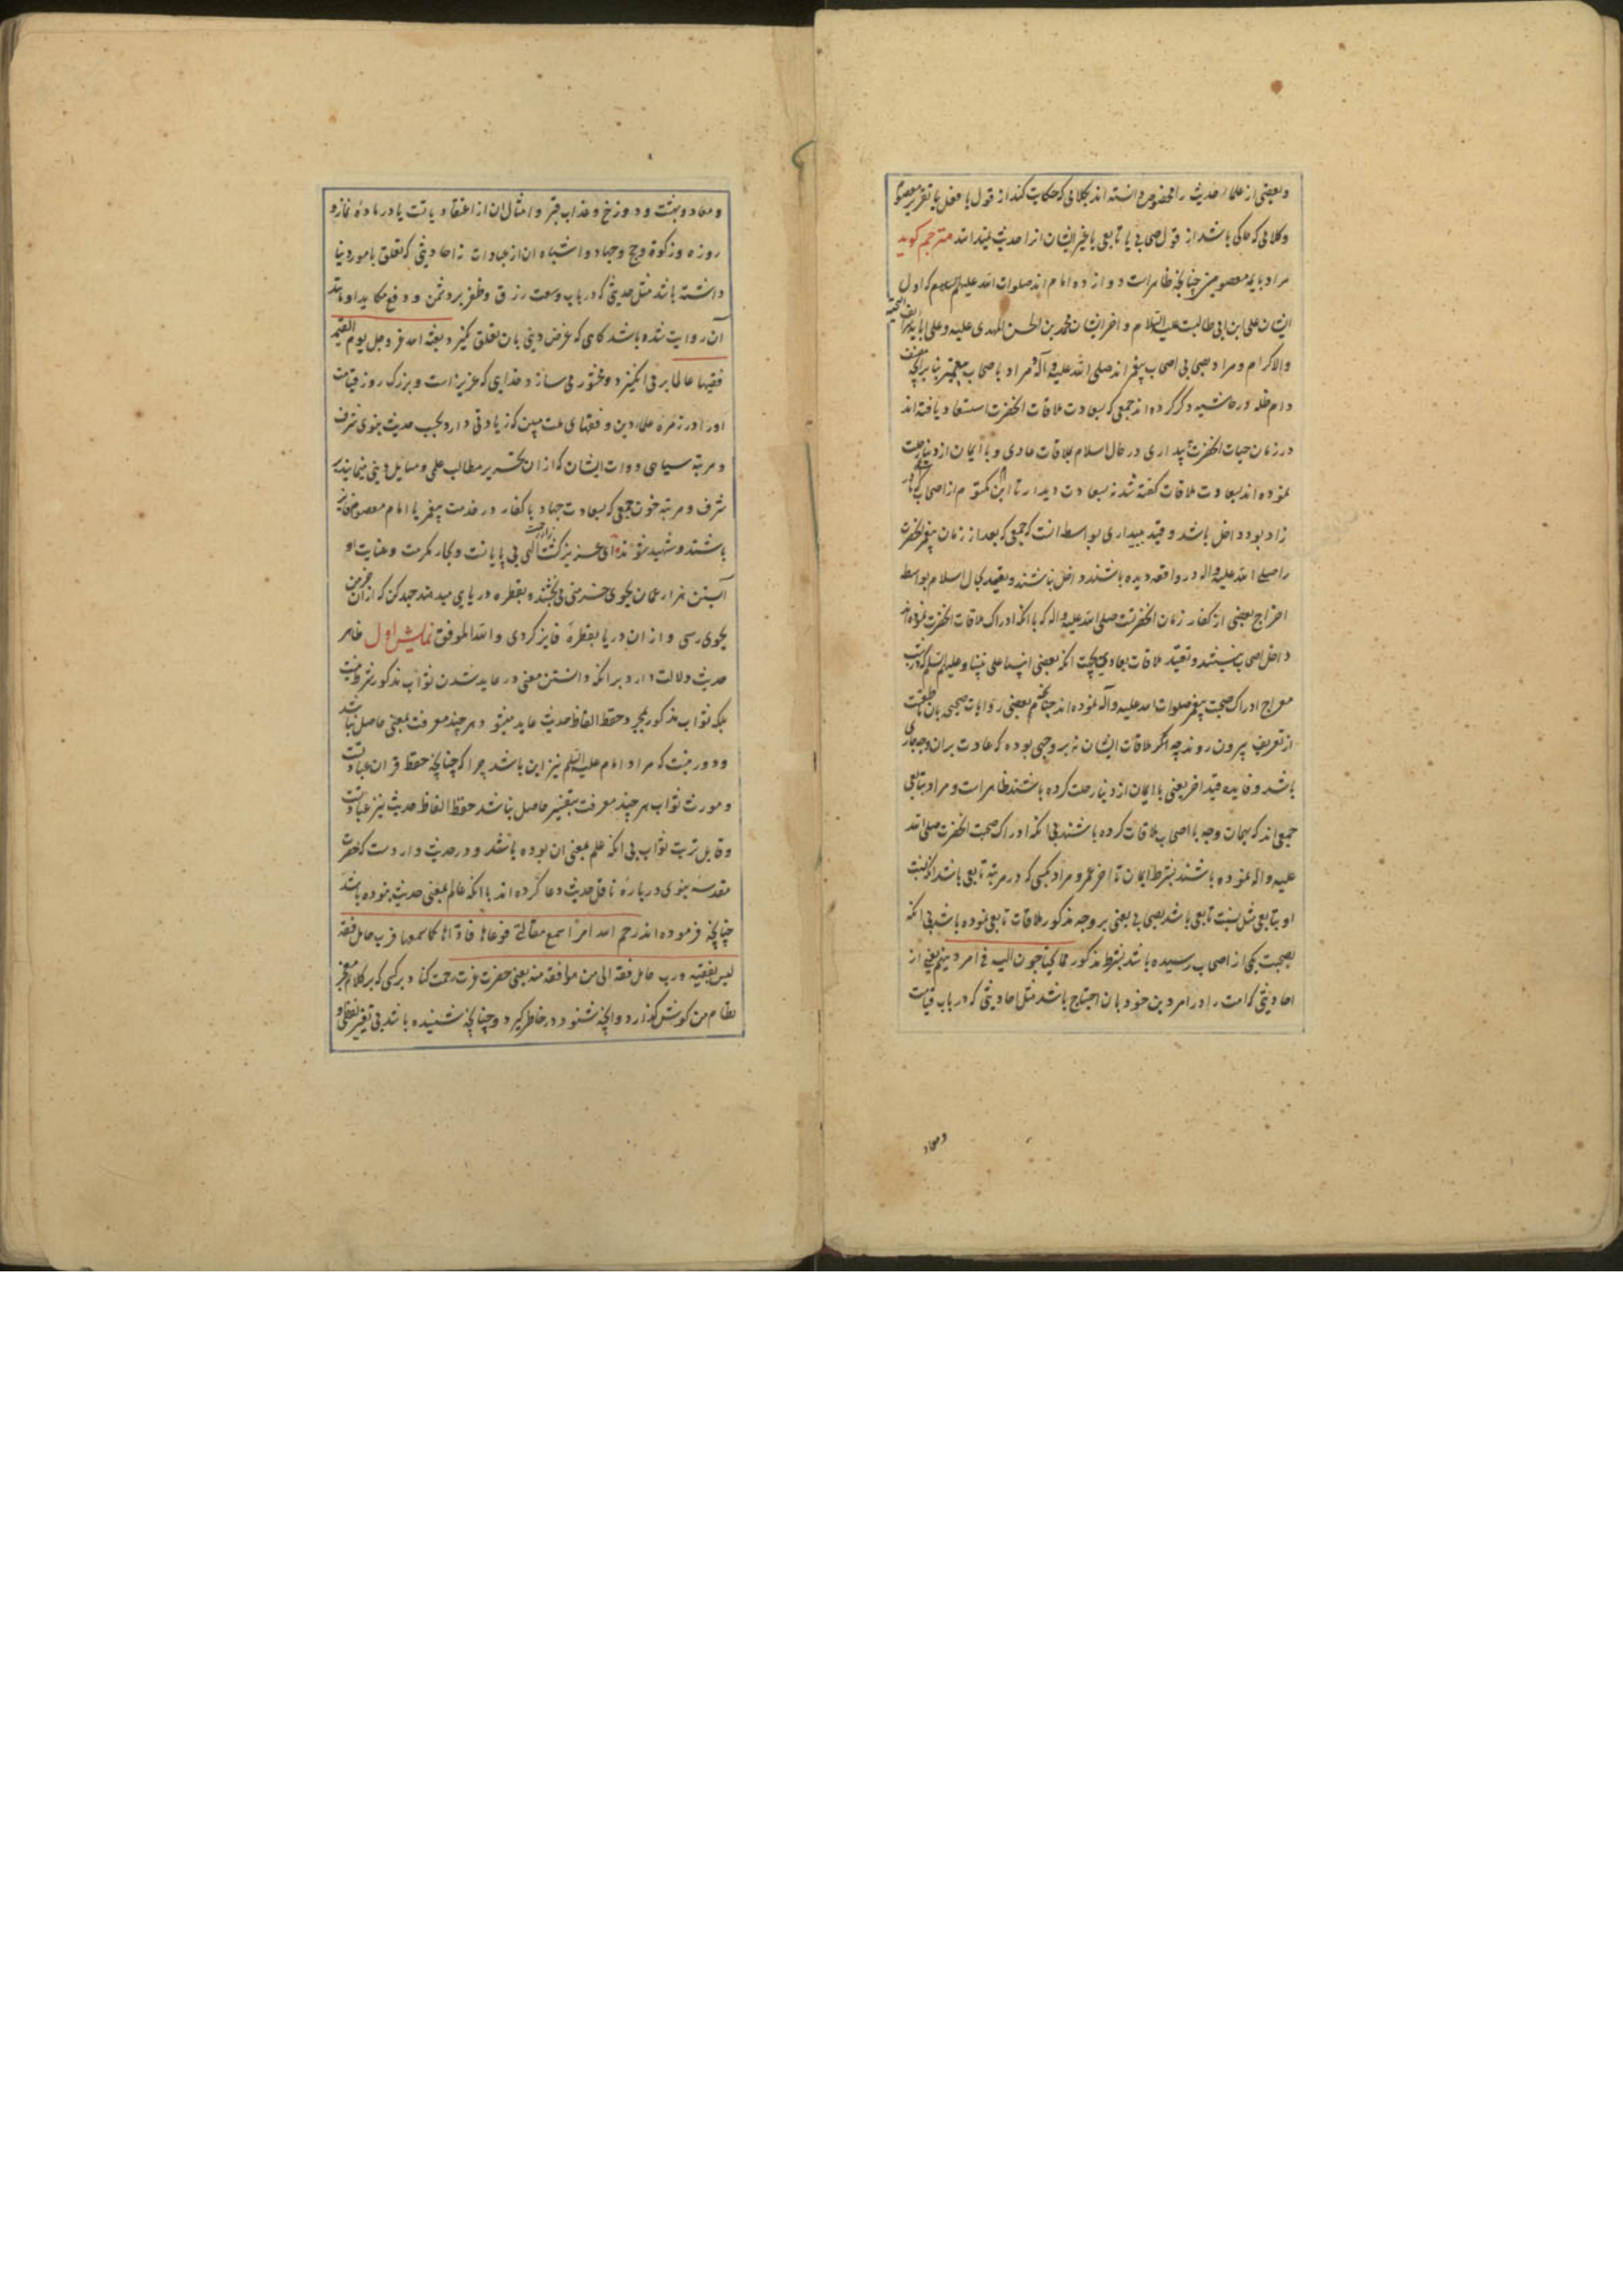 و بعضی از علماء حدیث را مخصوص دانسته اند بکلامی که حکایت کند از قول یا فعل یا تقریر معصوم
و کلامی که حاکی باشد از قول صحابی یا تابعی یا غیر ایشان انرا حدیث نمیدانند مترجم کوید
مراد بایمه معصومین چنانچه ظاهر است دوازده امام اند صلوات الله علیهم السلام که اول
ایشان علی ابن ابی طالبست علیه السلام و اخر ایشان محمد بن الحسن المهدی علیه و علی آبائه شرایف التحیه
والاکرام و مراد صحابی اصحاب پیغمبراند صلی الله علیه و آله و مراد باصحاب پیغمبر بنابر آنچه مصنف
دام ظله در حاشیه ذکر کرده اند جمعی که بسعادت ملاقات انحضرت استسعاد یافته اند
در زمان حیات انحضرت ببیداری در حال اسلام بملاقات عادی و با ایمان از دنیا رحلت
نموده اند بسعادت ملاقات کفته شد نه بسعادت دیدار تا ابن مکتوم از اصحاب که مادر
زاد بود داخل باشد و قید ببیداری بواسطه انست که جمعی که بعد از زمان پیغمبر انحضرت
را صلی الله علیه واله در واقعه دیده باشند داخل نباشند و تقیید بحال اسلام بواسطه
اخراج بعضی از کفار زمان انحضرتست صلی الله علیه واله که با انکه ادراک ملاقات انحضرت نموده اند
داخل اصحاب نیستند و تقیید ملاقات بعادی بجهت انکه بعضی انبیا علی نبینا و علیهم السلم که در شب
معراج ادراک صحبت پیغمبر صلوات الله علیه وآله نموده اند چنانچه بعضی روایات صحیح بان ناطقست
از تعریف بیرون روند چه اکر ملاقات ایشان نه بر وجهی بوده که عادت بران وجه جاری
باشد و فایده قید اخر یعنی با ایمان از دنیا رحلت کرده باشند ظاهر است و مراد بتابعی
جمعی اند که بهمان وجه با اصحاب ملاقات کرده باشند بی انکه ادراک صحبت انحضرت صلی الله
علیه واله نموده باشند بشرط ایمان تا اخر عمر و مراد بکسی که در مرتبه تابعی باشد انکه نسبت
او بتابعی مثل نسبت تابعی باشد بصحابی یعنی بر وجه مذکور ملاقات تابعی نموده باشد بی انکه
بصحبت یکی از اصحاب رسیده باشد بشرط مذکور مما یحتاجون الیه فی امر دینهم یعنی از
احادیثی که امت را در امر دین خود بان احتیاج باشد مثل احادیثی که در باب قیامت
و معاد
و معاد و بهشت و دوزخ و عذاب قبر و امثال ان از اعتقادیاتست یا در ماده نماز و
روزه و زکوة و حج و جهاد و اشباه ان از عبادات نه احادیثی که تعلق بامور دنیا
داشته باشد مثل حدیثی که در باب وسعت رزق و ظفر بر دشمن و دفع مکاید او مانند
آن روایت شده باشد کاهی که غرض دینی بان تعلق نکیرد بعثه الله عز و جل یوم القیمه
فقیها عالما برمی انکیزد و محشور می سازد خدایی که عزیز است و بزرک روز قیامت
اورا در زمره علماء دین و فقهای ملت مبین که زیادتی دارد بحسب حدیث نبوی شرف
و مرتبه سیاهی دوات ایشان که از ان تحریر مطالب علمی و مسایل دینی مینمایند بر
شرف و مرتبه خون جمعی که بسعادت جهاد با کفار در خدمت پیغمبر یا امام معصوم
باشند و شهید شوند ای عزیز کشت زار رحمت الهی بی پایانست و بحار مکرمت و عنایت او
آبستن هزار عمان بجوی خرمنی می بخشند و بقطره دریایی میدهند جهد کن که از ان خرمن
بجوی رسی و از ان دریا بقطرهٔ فایز کردی والله الموفق نمایش اول ظاهر
حدیث دلالت دارد برانکه دانستن معنی در عاید شدن ثواب مذکور شرط نیست
بلکه ثواب مذکور بمجرد حفظ الفاظ حدیث عاید میشود هر چند معرفت بمعنی حاصل نباشد
و دور نیست که مراد امام علیه السلم نیز این باشد چرا که چنانچه حفظ قران عبادتست
و مورث ثواب هر چند معرفت بتفسیر حاصل نباشد حفظ الفاظ حدیث نیز عبادتست
و قابل ترتب ثواب بی انکه علم بمعنی ان بوده باشد و در حدیث وارد است که حضرت
مقدسه نبوی در بارهٔ ناقل حدیث دعا کرده اند با انکه عالم بمعنی حدیث نبوده باشد
چنانچه فرموده اند رحم الله امرأ سمع مقالتی فوعاها فادّاها کما سمعها فرب حامل فقه
لیس بفقیه و رب حامل فقه الی من هو افقه منه یعنی حضرت عزت رحمت کناد بر کسی که بر کلام معجز
نظام من کوش کذارد و انچه شنود در خاطر کیرد و چنانچه شنیده باشد بی تغییر لفظی و